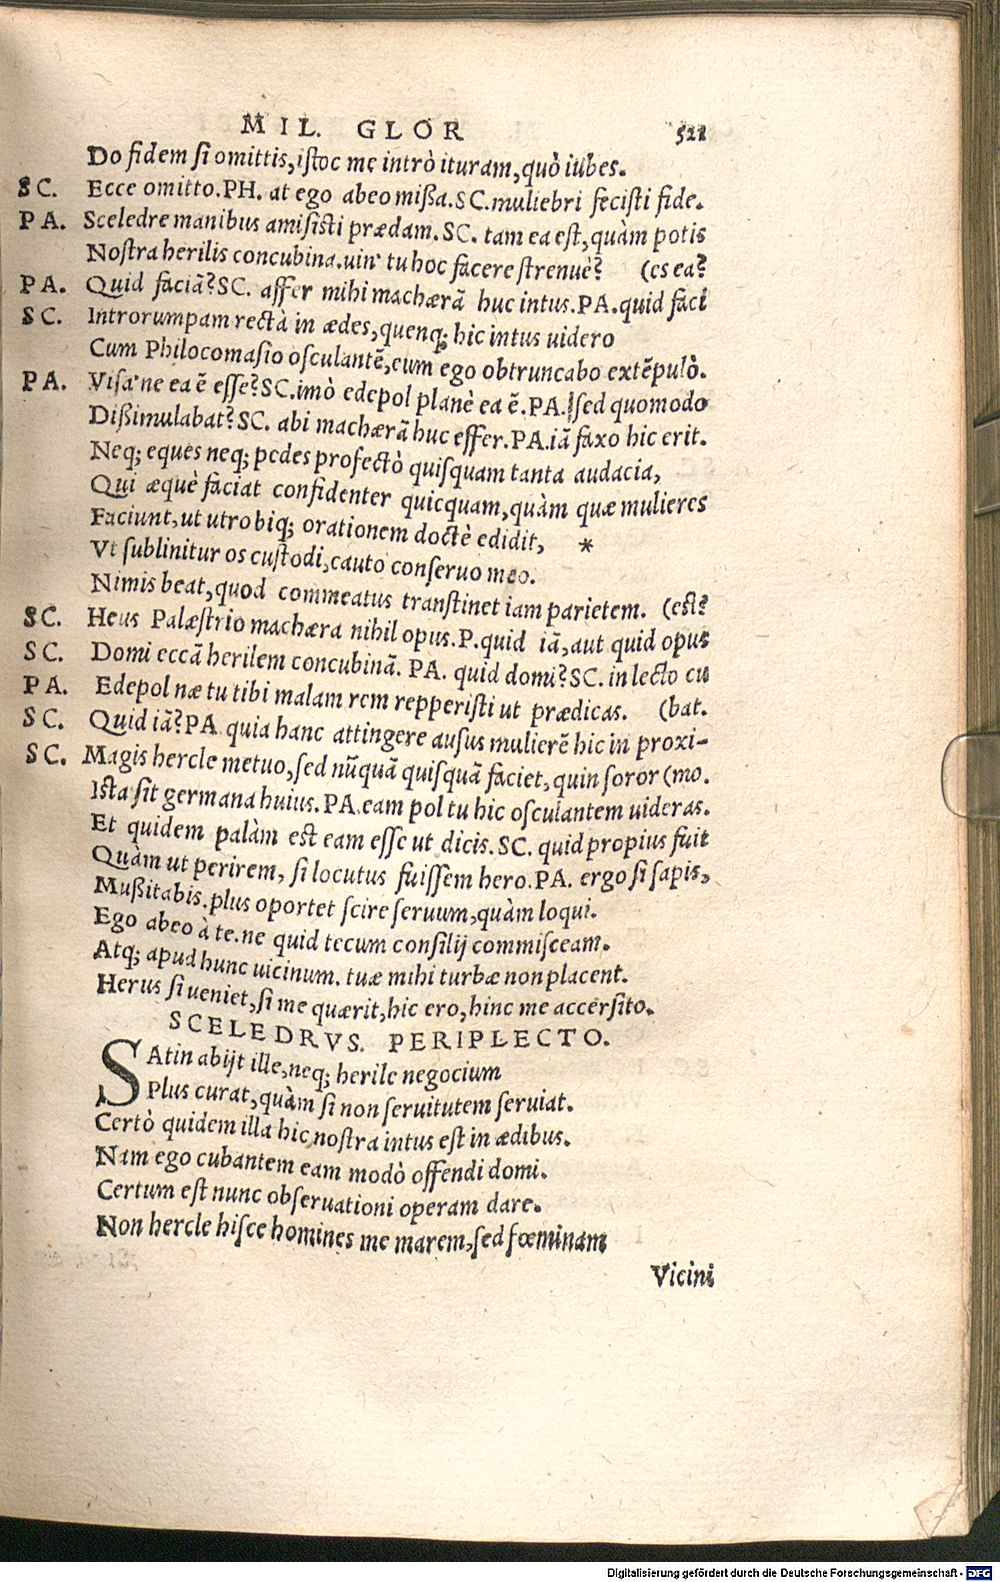 MIL. GLOR 521
Do fidem si omittis, istoc me intrò ituram, quò iubes.
SC. Ecce omitto. PH. at ego abeo missa. SC. muliebri fecisti fide.
PA. Sceledre manibus amisisti prædam. SC. tam ea est, quàm potis
Nostra herilis concubina. uin' tu hoc facere strenuè? (es ea?
PA. Quid faciā? SC. affer mihi machærā huc intus. PA. quid faci
SC. Introrumpam rectà in ædes, quenq; hic intus uidero
Cum Philocomasio osculantē, eum ego obtruncabo extēpulò.
PA. Visa'ne ea ē esse? SC. imò edepol planè ea ē. PA. sed quomodo
Dissimulabat? SC. abi machærā huc effer. PA. iā faxo hic erit.
Neq; eques neq; pedes profectò quisquam tanta audacia,
Qui æquè faciat confidenter quicquam, quàm quæ mulieres
Faciunt, ut utrobiq; orationem doctè edidit, *
Vt sublinitur os custodi, cauto conseruo meo.
Nimis beat, quod commeatus transtinet iam parietem. (est?
SC. Heus Palæstrio machæra nihil opus. P. quid iā, aut quid opus
SC. Domi eccā herilem concubinā. PA. quid domi? SC. in lecto cu
PA. Edepol næ tu tibi malam rem repperisti ut prædicas. (bat.
SC. Quid iā? PA quia hanc attingere ausus mulierē hic in proxi-
SC. Magis hercle metuo, sed nūquā quisquā faciet, quin soror (mo.
Ista sit germana huius. PA. eam pol tu hic osculantem uideras.
Et quidem palàm est eam esse ut dicis. SC. quid propius fuit
Quàm ut perirem, si locutus fuissem hero. PA. ergo si sapis,
Mussitabis. plus oportet scire seruum, quàm loqui.
Ego abeo à te. ne quid tecum consilij commisceam.
Atq; apud hunc uicinum. tuæ mihi turbæ non placent.
Herus si ueniet, si me quærit, hic ero, hinc me accersito.
SCELEDRVS. PERIPLECTO.
SAtin abijt ille, neq; herile negocium
Plus curat, quàm si non seruitutem seruiat.
Certò quidem illa hic nostra intus est in ædibus.
Nam ego cubantem eam modò offendi domi.
Certum est nunc obseruationi operam dare.
Non hercle hisce homines me marem, sed fœminam
Vicini
Digitalisierung gefördert durch die Deutsche Forschungsgemeinschaft - DFG